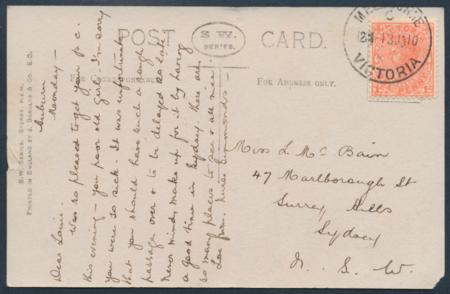 POST CARD.
S.W.
SERIES.
CORRESPONDENCE.
FOR ADDRESS ONLY.
S.W. SERIES, SYDNEY, N.S.W.
PRINTED IN ENGLAND BY & Co. E.C.
MELBOURNE
VICTORIA
Auburn
Monday –
Dear Louie.
Was so pleased to get your p.c.
this evening – you poor old girl – I'm sorry
you were so sick. It was unfortunate
that you should have such a rough
passage over & to be delayed so late
never mind make up for it by having
a good time in Sydney there are
so many places to see & all nice.
Love from
Miss L. Mc Bain
47 Marlborough St
Surrey Hills
Sydney
N. S. W.